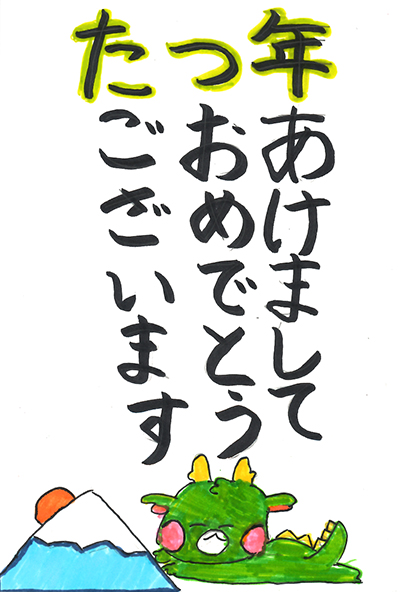 たつ年
あけまして
おめでとう
ございます